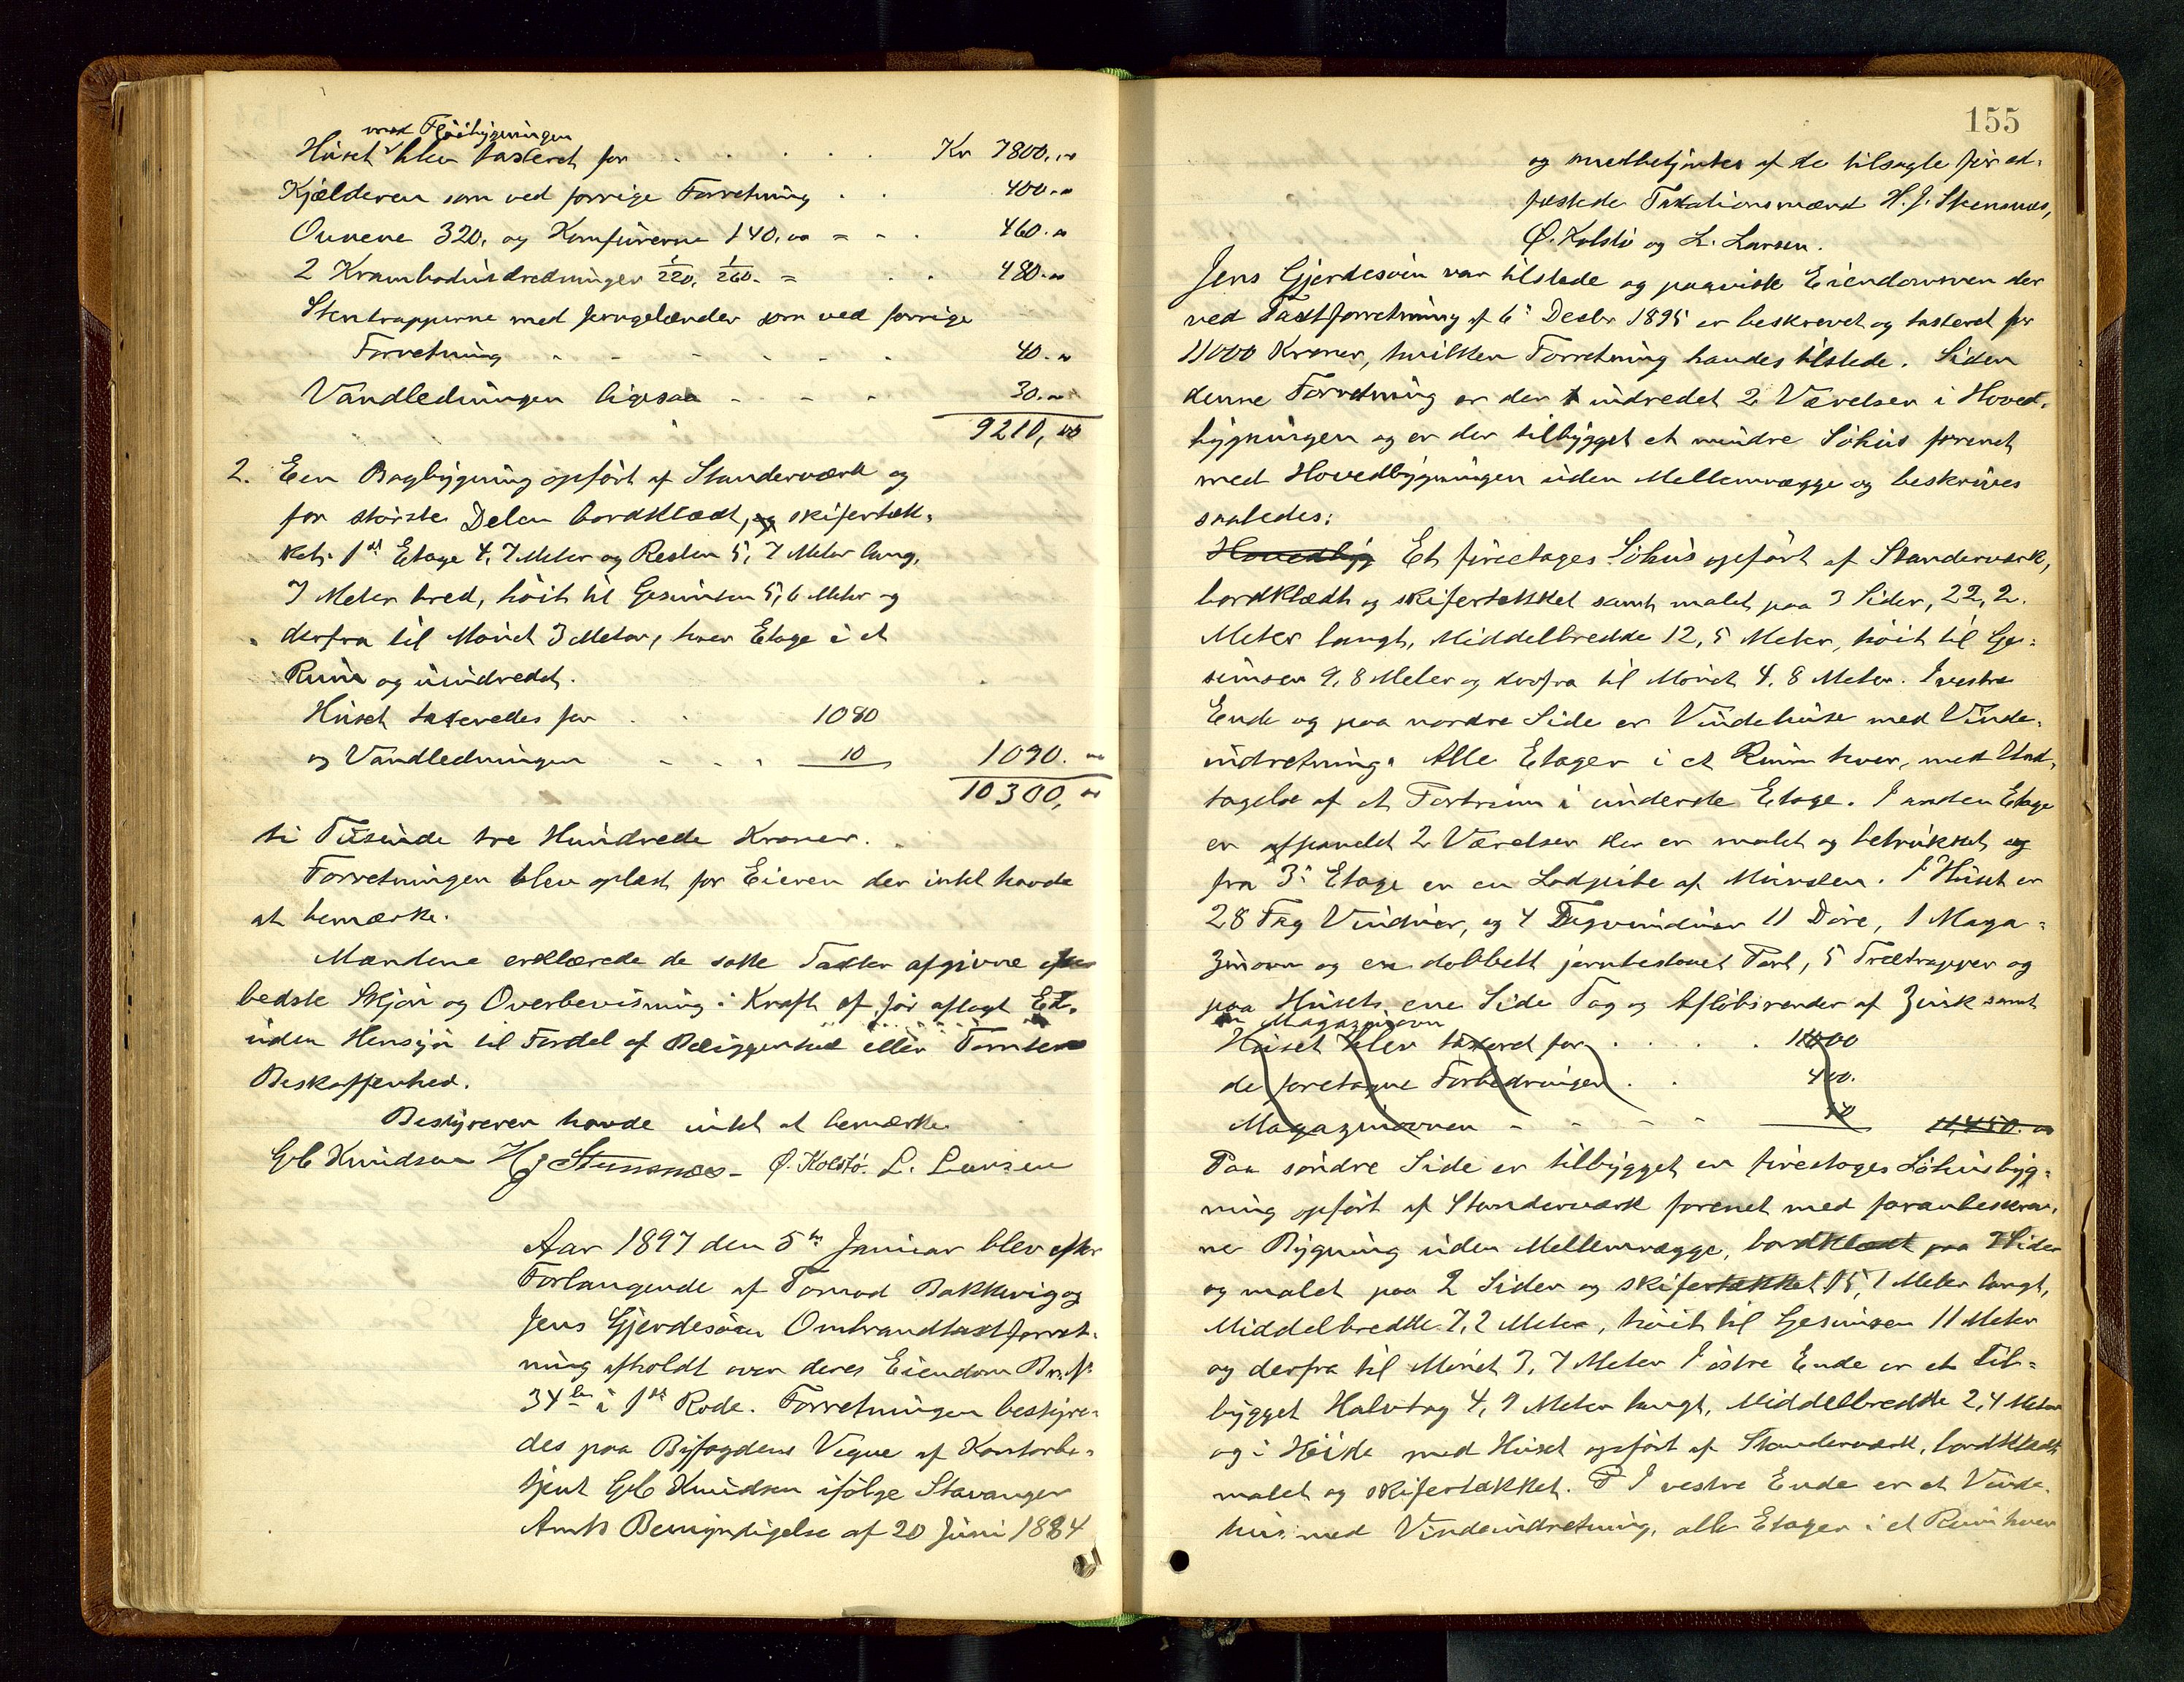 med Fløibygningen
Huset blev taxeret for . . . . . Kr 7800,00
Kjælderen som ved forrige Forretning . . 400.00
Ovnene 320. og Komfurerne 140,00 = - . 460.00
2 Krambodindredninger 1/220, 1/260. = . . 480.00
Stentrapperne med Jerngelænder som ved forrige
Forretning - - - - - - 40.00
Vandledningen ligesaa - - - 30.00
9210,00
2. Een Bagbygning opført af Standerværk og
for største Delen bordklædt, og skifertæk-
ket. 1ste Etage 4,7 Meter og Resten 5,7 Meter lang,
7 Meter bred, høit til Gesimsen 5,6 Meter og
derfra til Mønet 3 Meter, hver Etage i et
Rum og uindredet.
Huset taxeredes for . . . 1080
og Vandledningen - - - 10 1090.00
10300,00
ti Tusinde tre Hundrede Kroner.
Forretningen blev oplæst for Eieren der intet havde
at bemærke.
Mændene erklærede de satte Taxter afgivne efter
bedste Skjøn og Overbevisning i Kraft af før aflagt Ed,
uden Hensyn til Fordel af Beliggenhed eller Tomtens
Beskaffenhed.
Bestyreren havde intet at bemærke
Knudsen H J Stensnæs - Ø. Kolstø. L. Larsen
Aar 1897 den 5te Januar blev efter
Forlangende af Tormod Bakkevig og
Jens Gjerdesøen Ombrandtaxtforret-
ning afholdt over deres Eiendom Br. No
34 i 1ste Rode. Forretningen bestyre-
des paa Byfogdens Vegne af Kontorbe-
tjent Knudsen ifølge Stavanger
Amts Bemyndigelse af 20 Juni 1884
155
og medbetjentes af de tilsagte før ed-
fæstede Taxationsmænd H. J. Stensnæs,
Ø. Kolstø og L. Larsen.
Jens Gjerdesøen var tilstede og paaviste Eiendommen der
ved Taxtforretning af 6te Decbr 1895 er beskrevet og taxeret for
11000 Kroner, hvilken Forretning havdes tilstede. Siden
denne Forretning er der indredet 2 Værelser i Hoved-
bygningen og er der tilbygget et mindre Søhus forenet
med Hovedbygningen uden Mellemvægge og beskrives
saaledes:
Hovedbyg Et fireetages Søhus opført af Standerværk,
bordklædt og skifertækket samt malet paa 3 Sider, 22,2.
Meter langt, Middelbredde 12,5 Meter, høit til Ge-
simsen 9,8 Meter og derfra til Mønet 4,8 Meter. I vestre
Ende og paa nordre Side er Vindehuse med Vinde-
indretning. Alle Etager i et Rum hver, med Und-
tagelse af et Fortrum i underste Etage. I anden Etage
er afpanelet 2 Værelser der er malet og betrukket, og
fra 3die Etage er en Lodpibe af Mursten. I Huset er
28 Fag Vinduer, og 4 Tagvinduer 11 Døre, 1 Maga-
zinovn og en dobbelt jernbeslaaet Port, 5 Trætrapper og
paa Husets ene Side Tag og Afløbsrender af Zink samt
en Magazinovn
Huset blev taxeret for . . . . . 11000
de foretagne Forbedringer . . 400.
Magazinovnen - - - - 50 11,450.00
Paa søndre Side er tilbygget en fireetages Søhusbyg-
ning opført af Standerværk forenet med foranbeskrev-
ne Bygning uden Mellemvægge, bordklædt paa 3 Sider
og malet paa 2 Sider og skifertækket 15,1 Meter langt,
Middelbredde 7,2 Meter, høit til Gesimsen 11 Meter
og derfra til Mønet 3,7 Meter I østre Ende er et til-
bygget Halvtag 4,9 Meter langt, Middelbredde 2,4 Meter
og i Høide med Huset opført af Standerværk, bordklædt
malet og skifertækket. I vestre Ende er et Vinde-
hus med Vindeindretning, alle Etager i et Rum hver